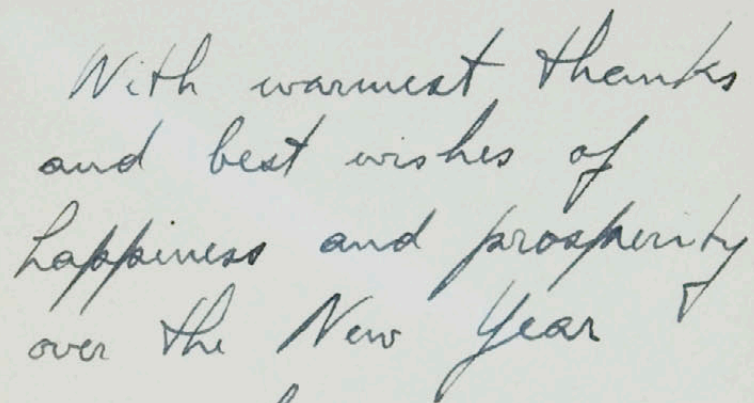 With warmest thanks
and best wishes of
happiness and prosperity
over the New Year